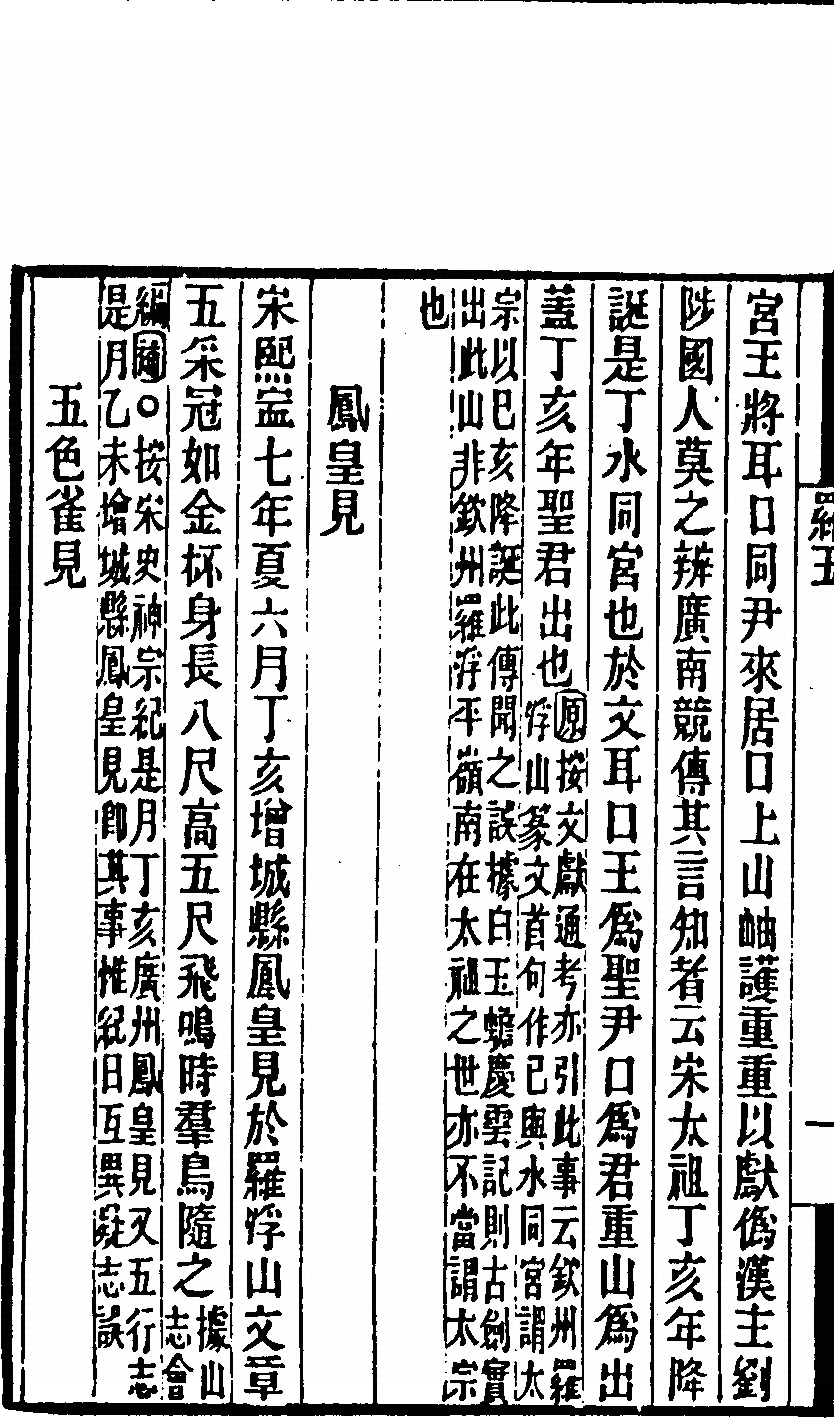 羅五
一
宮王將耳口同尹來居口上山岫護重重以獻僞漢主劉
陟國人莫之辨廣南競傳其言知者云宋太祖丁亥年降
誕是丁水同宮也於文耳口王爲聖尹口爲君重山爲出
蓋丁亥年聖君出也
原按文獻通考亦引此事云欽州羅
浮山篆文首句作已與水同宮謂太
宗以巳亥降誕此傳聞之誤據白玉蟾慶雲記則古劍實
出此山非欽州羅浮平嶺南在太祖之世亦不當謂太宗
也
鳳皇見
宋熙寍七年夏六月丁亥增城縣鳳皇見於羅浮山文章
五采冠如金杯身長八尺高五尺飛鳴時羣鳥隨之
據山
志會
編○按宋史神宗紀是月丁亥廣州鳳皇見又五行志
是月乙未增城縣鳳皇見卽其事惟紀日互異疑志誤
五色雀見